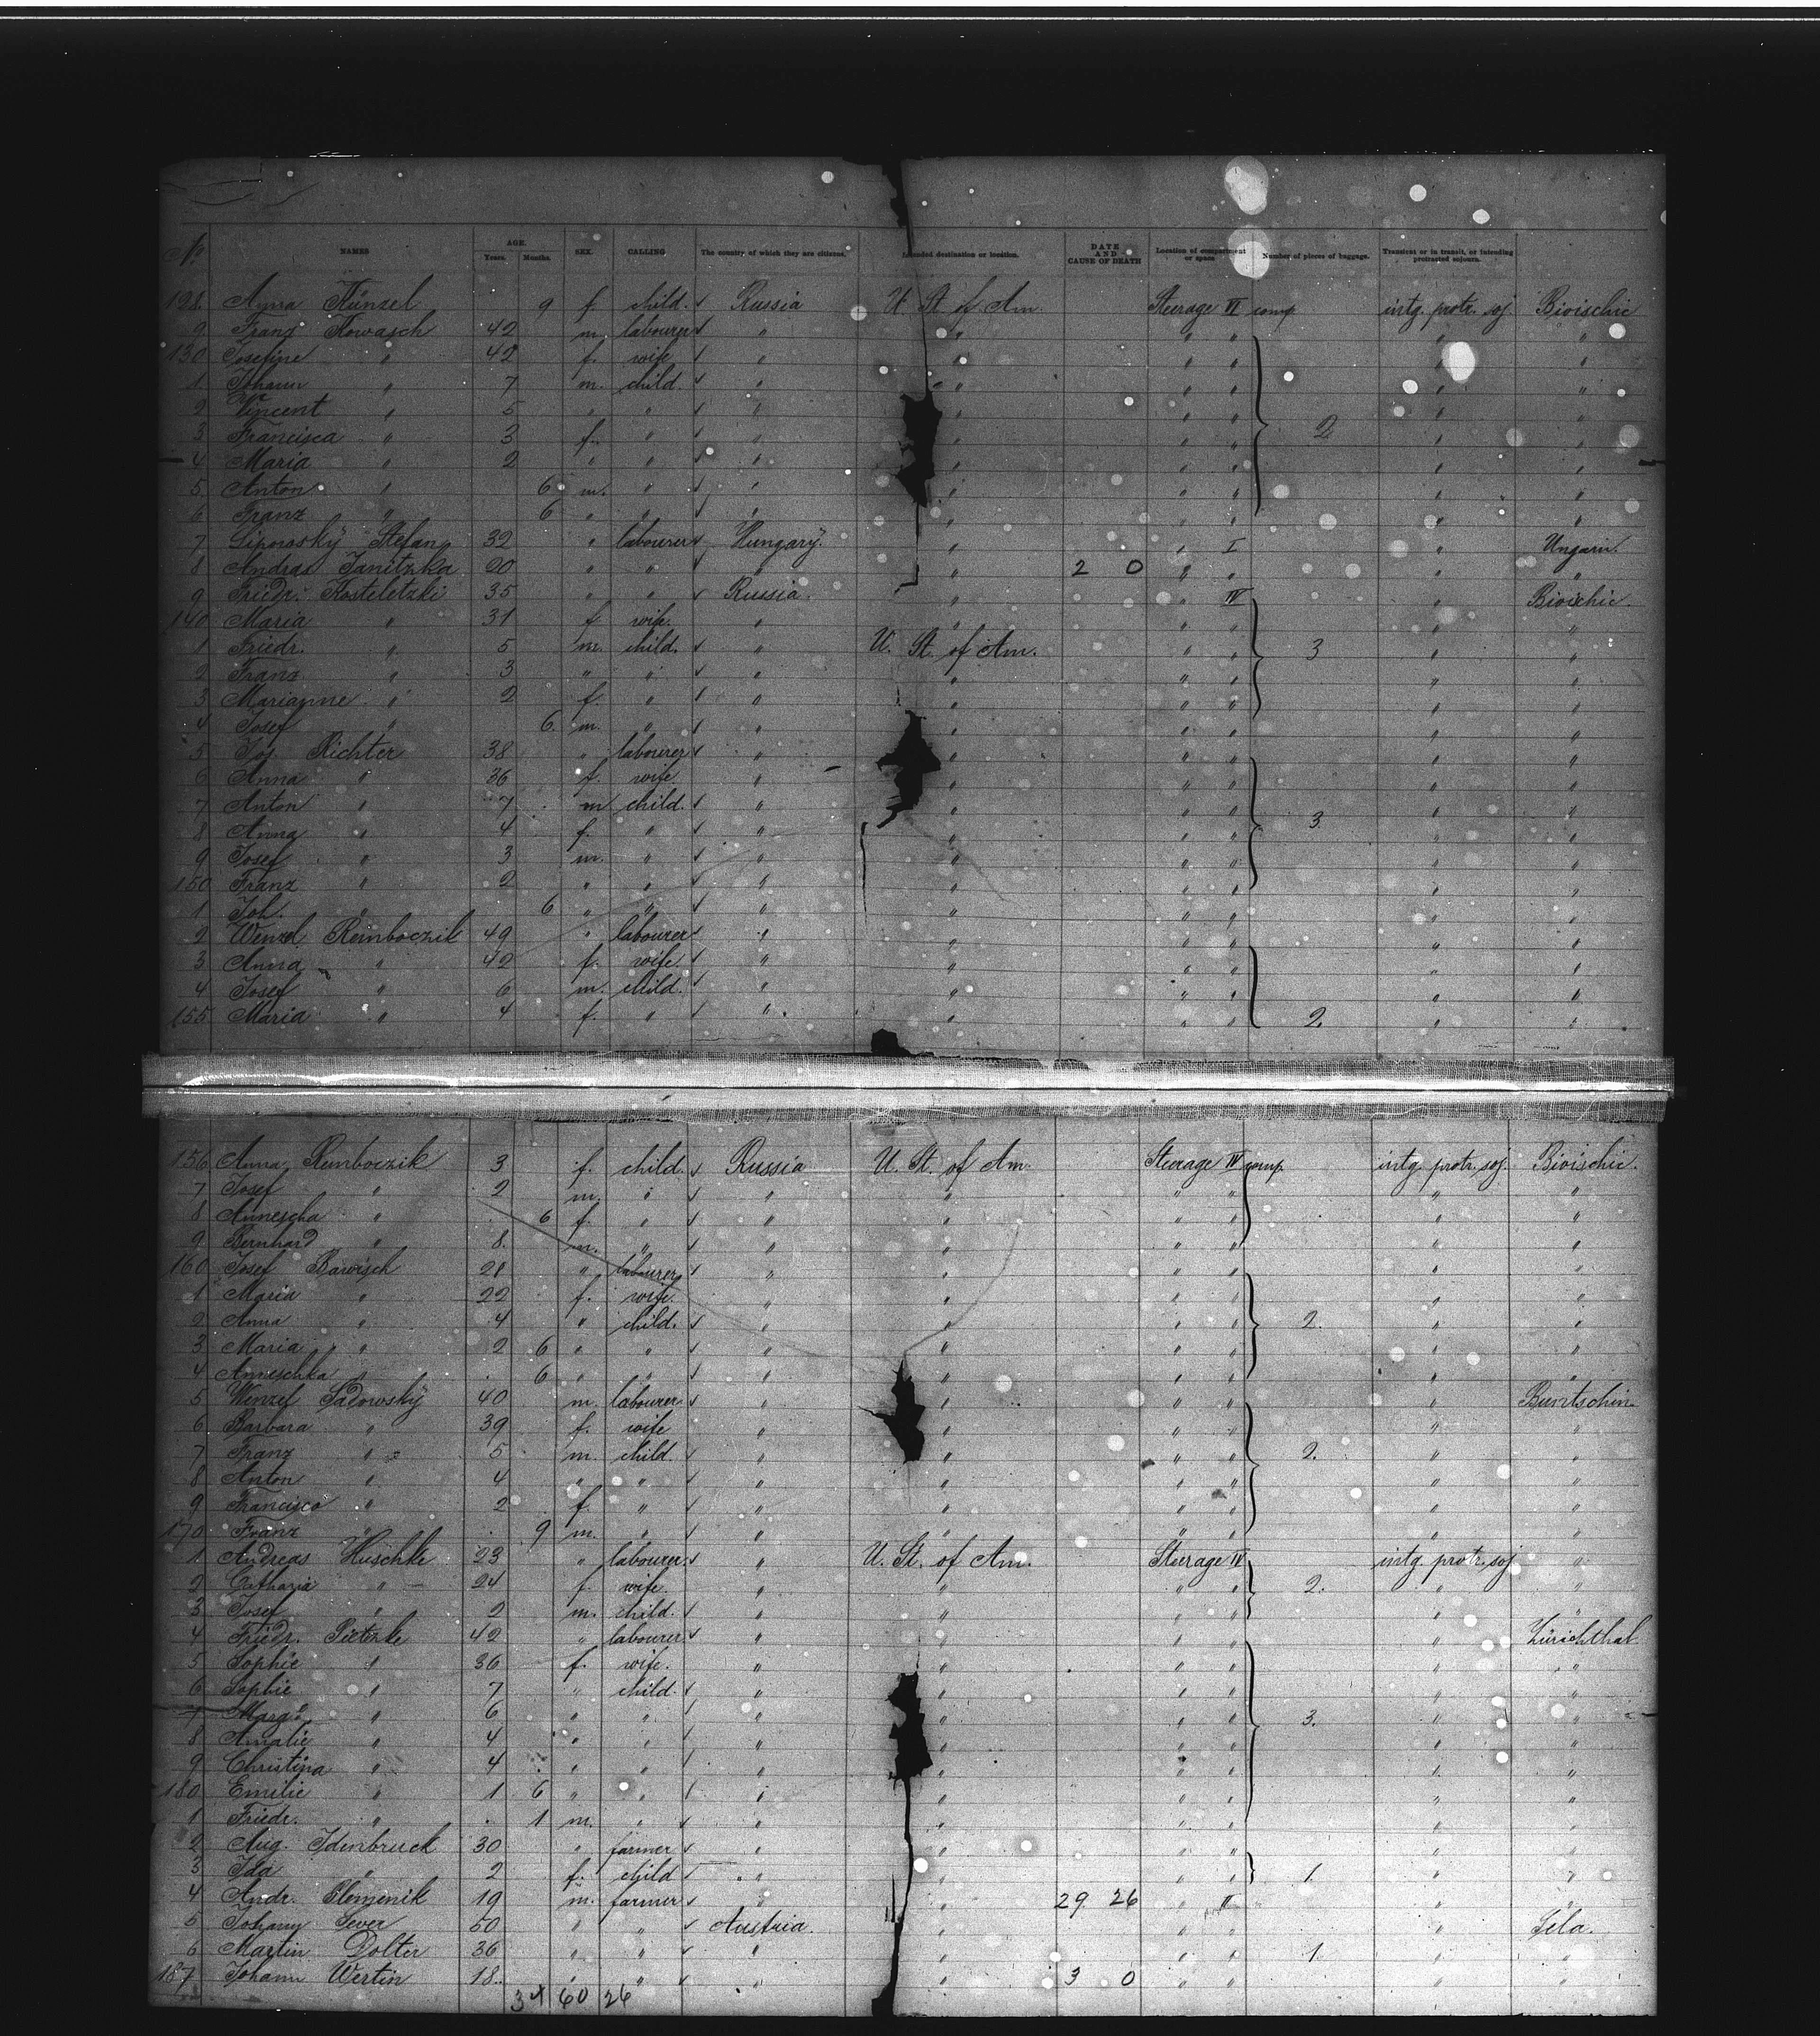 No NAMES AGE. Years. Months. SEX. CALLING The country of which they are citizens. Intended destination or location. DATE AND CAUSE OF DEATH Location of compartment or space Number of pieces of baggage. Transient or in transit, or intending protracted sojourn.
128. Anna Künzel 9 f. child. Russia U. St. of Am. Steerage VI comp. intg. protr. soj. Bivischie
9 Franz Kowasch 42 m. labourer " " " " " "
130 Josefine " 42 f. wife " " " " " "
1 Johann " 7 m. child. " " " " " "
2 Vincent " 5 " " " " " " " "
3 Francisca " 3 f. " " " " " 2. " "
4 Maria " 2 " " " " " " " "
5 Anton " 6 m. " " " " " " "
6 Franz " 6 " " " " " " " "
7 Stefan 32 " labourer Hungary. " " I " Ungarn.
8 Andras Janitzka 20 " " " " 2 0 " " " "
9 Friedr. Kosteletzki 35 " " Russia. " " IV " Bivischie.
140 Maria " 31 f. wife. " " " " " "
1 Friedr. " 5 m. child. " U. St. of Am. " " 3 " "
2 Franz " 3 " " " " " " " "
3 Marianne " 2 f. " " " " " " "
4 Josef " 6 m. " " " " " " "
5 Jos. Richter 38 " labourer " " " " " "
6 Anna " 36 f. wife " " " " " "
7 Anton " 7 m child. " " " " " "
8 Anna " 4 f. " " " " " 3. " "
9 Josef " 3 m. " " " " " " "
150 Franz " 2 " " " " " " " "
1 Joh. " 6 " " " " " " " "
2 Wenzel Remboczik 49 " labourer " " " " " "
3 Anna " 42 f. wife " " " " " "
4 Josef " 6 m. child. " " " " " "
155 Maria " 4 f. " " " " " 2. " "
156 Anna Remboczik 3 f. child. Russia U. St. of Am. Steerage IV comp. intg. protr. soj. Bivischie.
7 Josef " 2 m. " " " " " " "
8 Annescha " 6 f. " " " " " " "
9 Bernhard " 8. m. " " " " " " "
160 Josef Bawisch 28 " labourer " " " " " "
1 Maria " 22 f. wife. " " " " " "
2 Anna " 4 " child. " " " " 2. " "
3 Maria " 2 6 " " " " " " " "
4 Anneschka " 6 " " " " " " " "
5 Wenzel Sadowský 40 m. labourer " " " " " Buntschin.
6 Barbara " 39 f. wife " " " " " "
7 Franz " 5 m. child. " " " " 2. " "
8 Anton " 4 " " " " " " " "
9 Francisca " 2 f. " " " " " " "
170 Franz " 9 m. " " " " " " "
1 Andreas Huschke 23 " labourer " U. St. of Am. Steerage IV intg. protr. soj. "
2 " 24 f. wife " " " " 2. " "
3 Josef " 2 m. child. " " " " " "
4 Friedr. 42 " labourer " " " " " Zürichthal
5 Sophie " 36 f. wife. " " " " " "
6 Sophie " 7 " child. " " " " " "
7 Marg. " 6 " " " " " " 3. " "
8 Amalie " 4 " " " " " " " "
9 Christina " 4 " " " " " " " "
180 Emilie " 1 6 " " " " " " " "
1 Friedr. " 1 m. " " " " " " "
2 Aug. Idenbruck 30 " farmer " " " " " "
3 Ida " 2 f. child " " " " 1. " "
4 Andr. Klemenik 19 m. farmer " " 29 26 " II " "
5 Johann Sever 50 " " Austria. " " " " Sela.
6 Martin Dolter 36 " " " " " " 1. " "
187 Johann Wertin 18. " " " " 3 0 " " " "
34 60 26